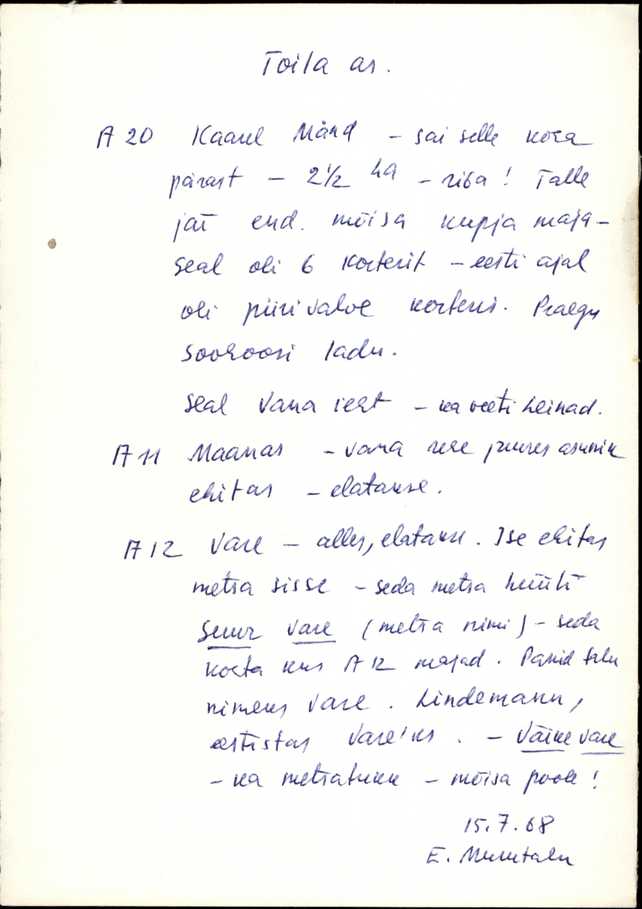 Toila as.
A 20 Kaarel Mänd – sai selle koera
pärast – 2 1/2 ha – riba! Talle
jäi end. mõisa kupja maja –
seal oli 6 korterit – eesti ajal
oli piirivalve korteris. Praegu
sovhoosi ladu.
Seal vana rehi – ka veeti heinad.
A 11 Maanas – vana rehe juures asunik
ehitas – elatakse.
A 12 Vare – alles, elatakse. Ise ehitas
metsa sisse – seda metsa hüüti
Suur Vare (metsa nimi) – seda
kohta kus A 12 majad. Panid talu
nimeks Vare. Lindemann,
eestistas Vare'ks. – Väike Vare
– ka metsatukk – mõisa pool!
15.7.68
E.